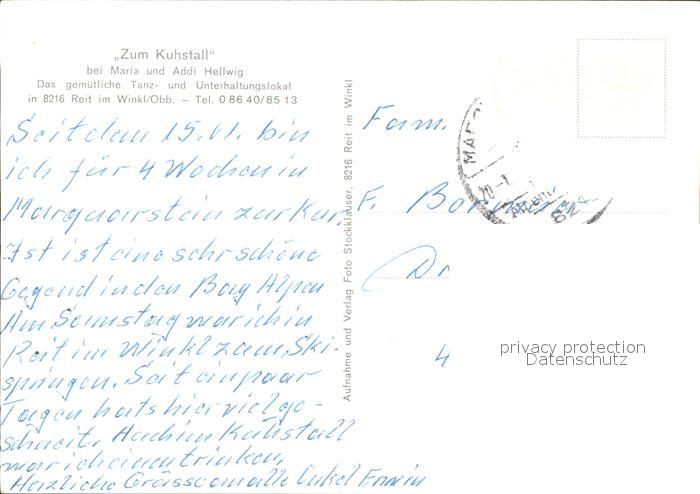 „Zum Kuhstall"
bei Maria und Addi Hellwig
Das gemütliche Tanz- und Unterhaltungslokal
in 8216 Reit im Winkl/Obb. – Tel. 0 86 40/85 13
Seit dem 15.01. bin
ich für 4 Wochen in
Marquartstein zur Kur.
Ist ist eine sehr schöne
Gegend in den Bay Alpen
Am Samstag war ich in
Reit im Winkl zum Ski-
springen. Seit ein paar
Tagen hats hier viel ge-
schneit. Auch im Kuhstall
war ich einen trinken,
Herzliche Grüsse an alle Onkel Erwin
Aufnahme und Verlag Foto Stockklauser, 8216 Reit im Winkl
Fam.
F.
Dr
4
privacy protection
Datenschutz